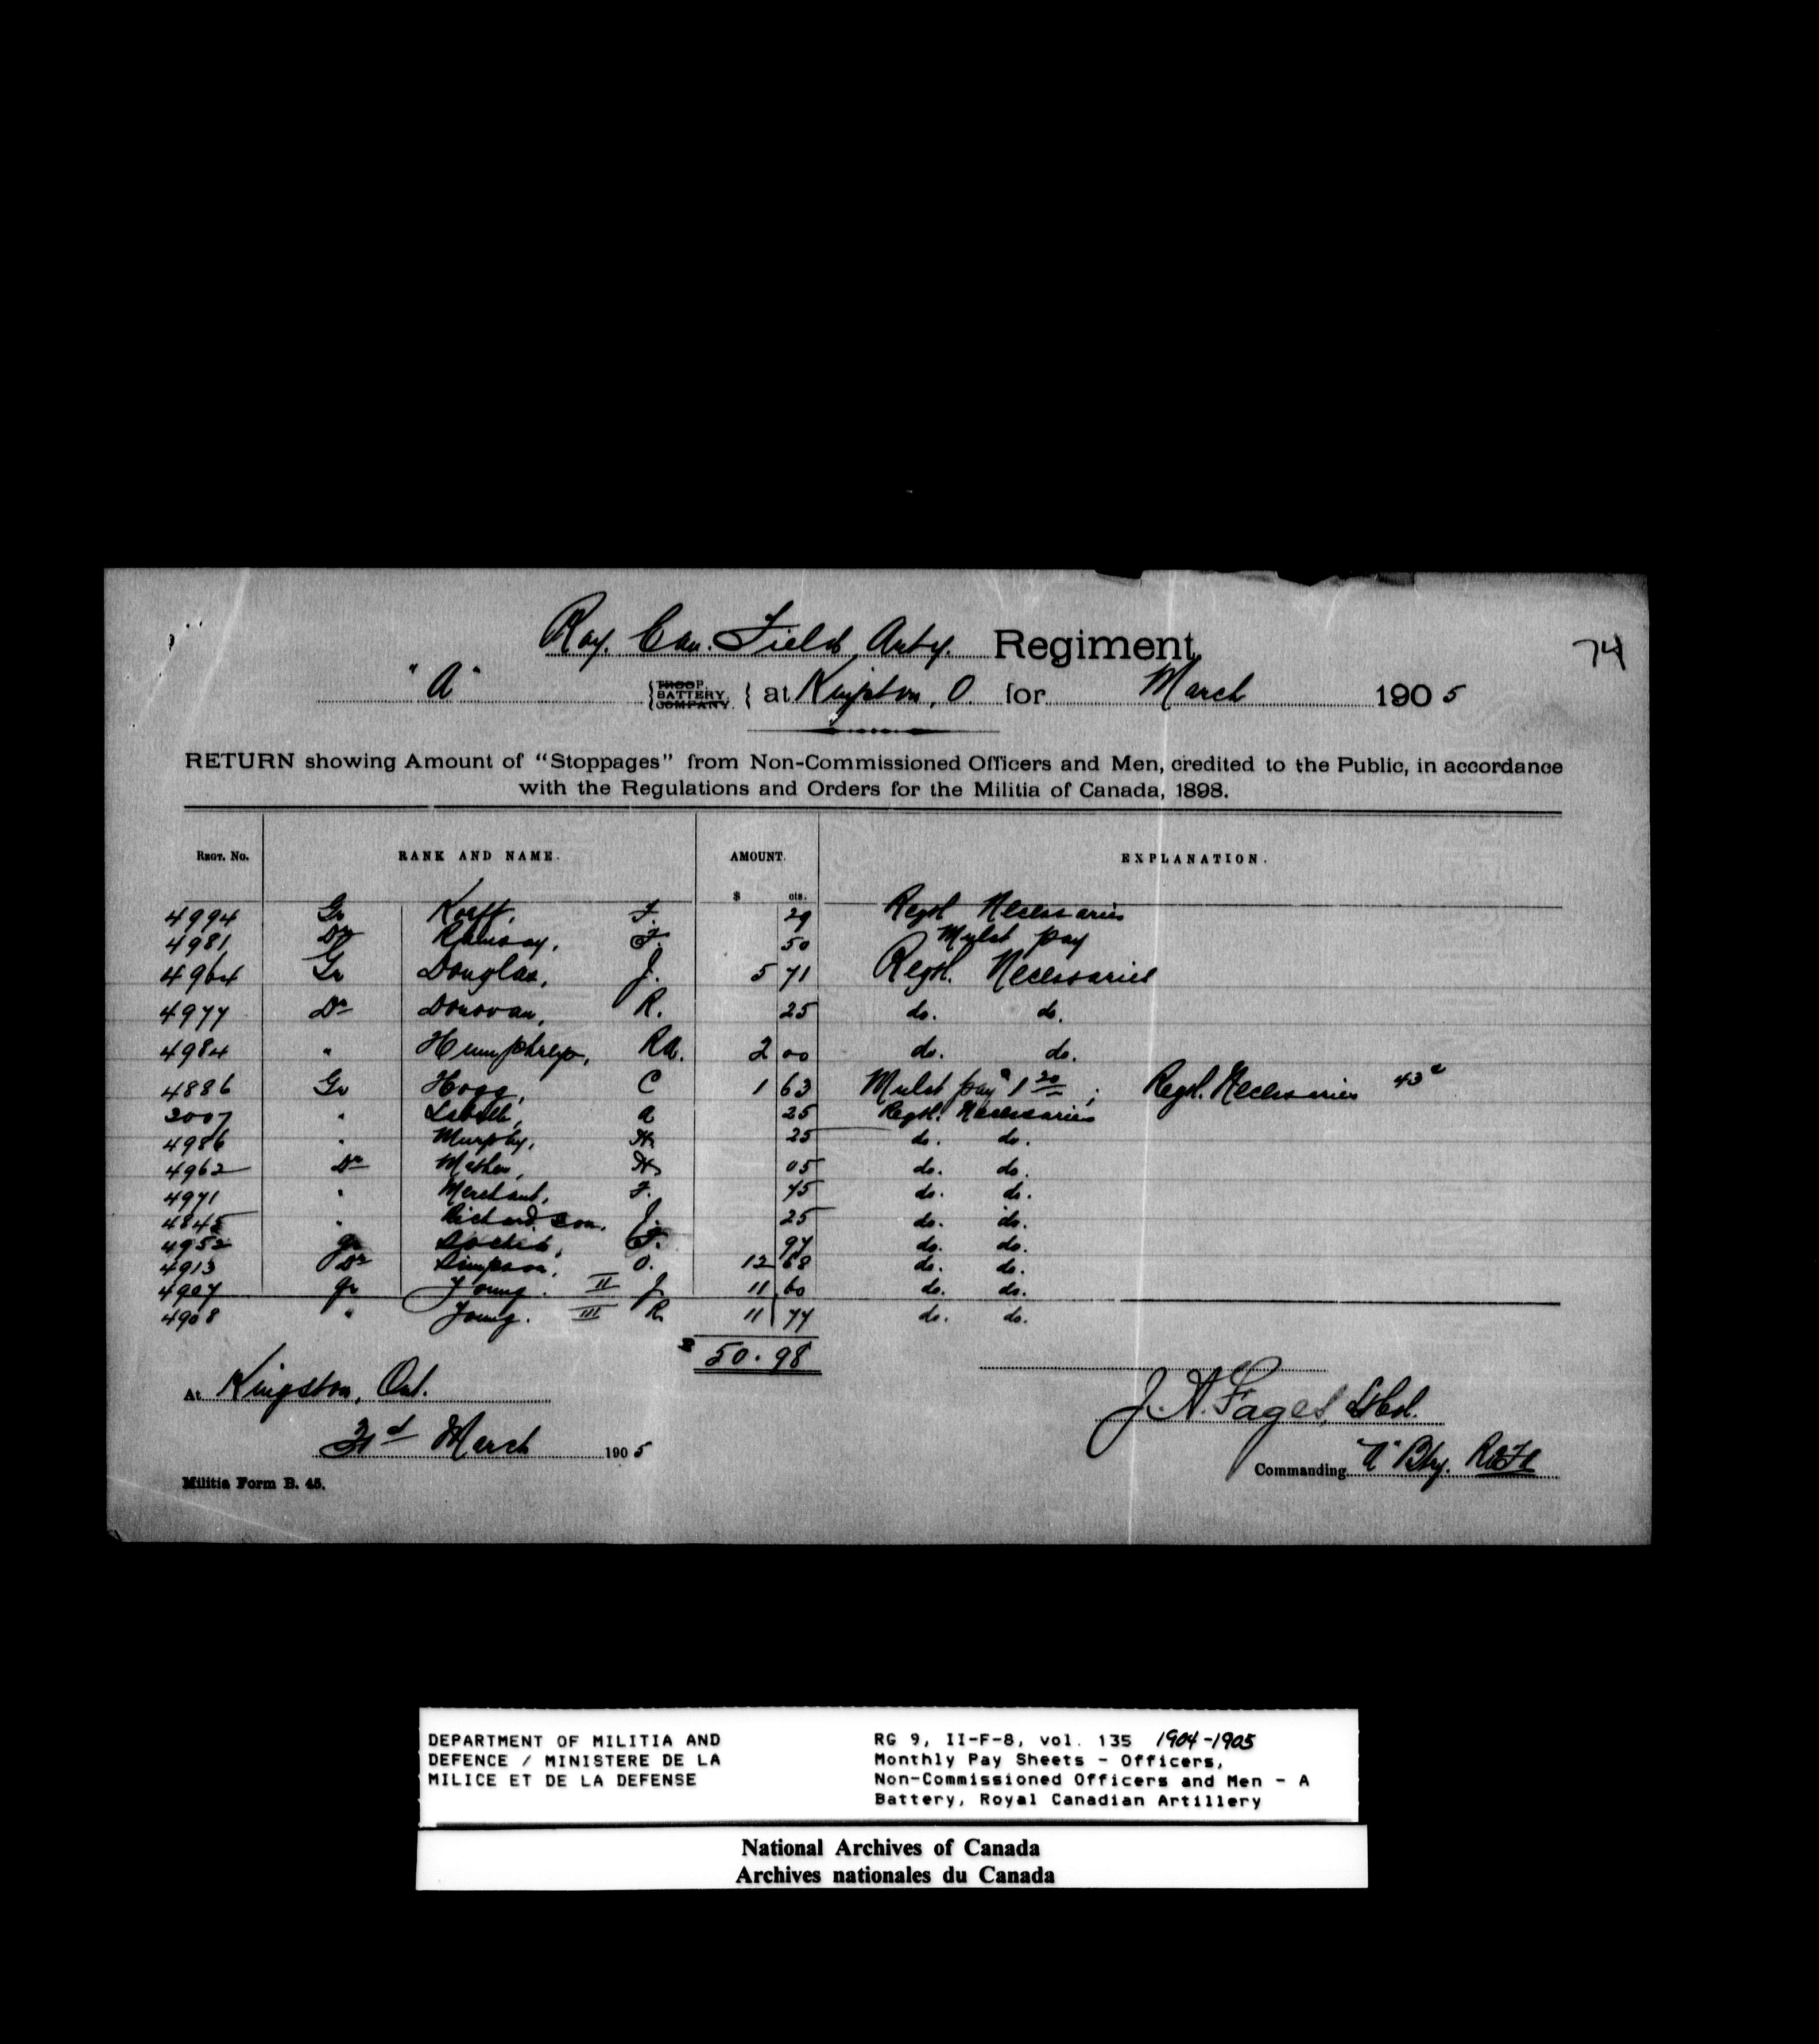 74
Roy. Can. Field Arty. Regiment
"A" {TROOP. BATTERY. COMPANY. { at Kingston, O. for March 1905
RETURN showing Amount of "Stoppages" from Non-Commissioned Officers and Men, credited to the Public, in accordance
with the Regulations and Orders for the Militia of Canada, 1898.
REGT. No. RANK AND NAME. AMOUNT. EXPLANATION.
$ cts.
4994 Gr F. 29 Regtl Necessaries
4981 Dr Ramsay, F. 50 Mulct pay
4964 Gr Douglas, J. 5 71 Regtl. Necessaries
4977 Dr Donovan, R. 25 do. do.
4984 " Humphreys, RA. 2 00 do. do.
4886 Gr Hogg, C 1 63 Mulct pay 1 20 ; Regtl. Necessaries 43c
3007 " A 25 Regtl. Necessaries
4986 " Murphy, H 25 do. do.
4962 Dr H 05 do. do.
4971 " Merchant, F. 75 do. do.
4845 " Richardson, J. 25 do. do.
4952 Gr F. 97 do. do.
4913 Dr Simpson, O. 12 68 do. do.
4907 Gr Young. II J 11 60 do. do.
4908 " Young. III R 11 77 do. do.
$ 50.98
At Kingston, Ont.
31st March 1905
J. A. Fages Lt Col.
Commanding "A" Bty. RCFA
Militia Form B. 45.
DEPARTMENT OF MILITIA AND
DEFENCE / MINISTERE DE LA
MILICE ET DE LA DEFENSE
RG 9, II-F-8, vol. 135 1904-1905
Monthly Pay Sheets - Officers,
Non-Commissioned Officers and Men - A
Battery, Royal Canadian Artillery
National Archives of Canada
Archives nationales du Canada